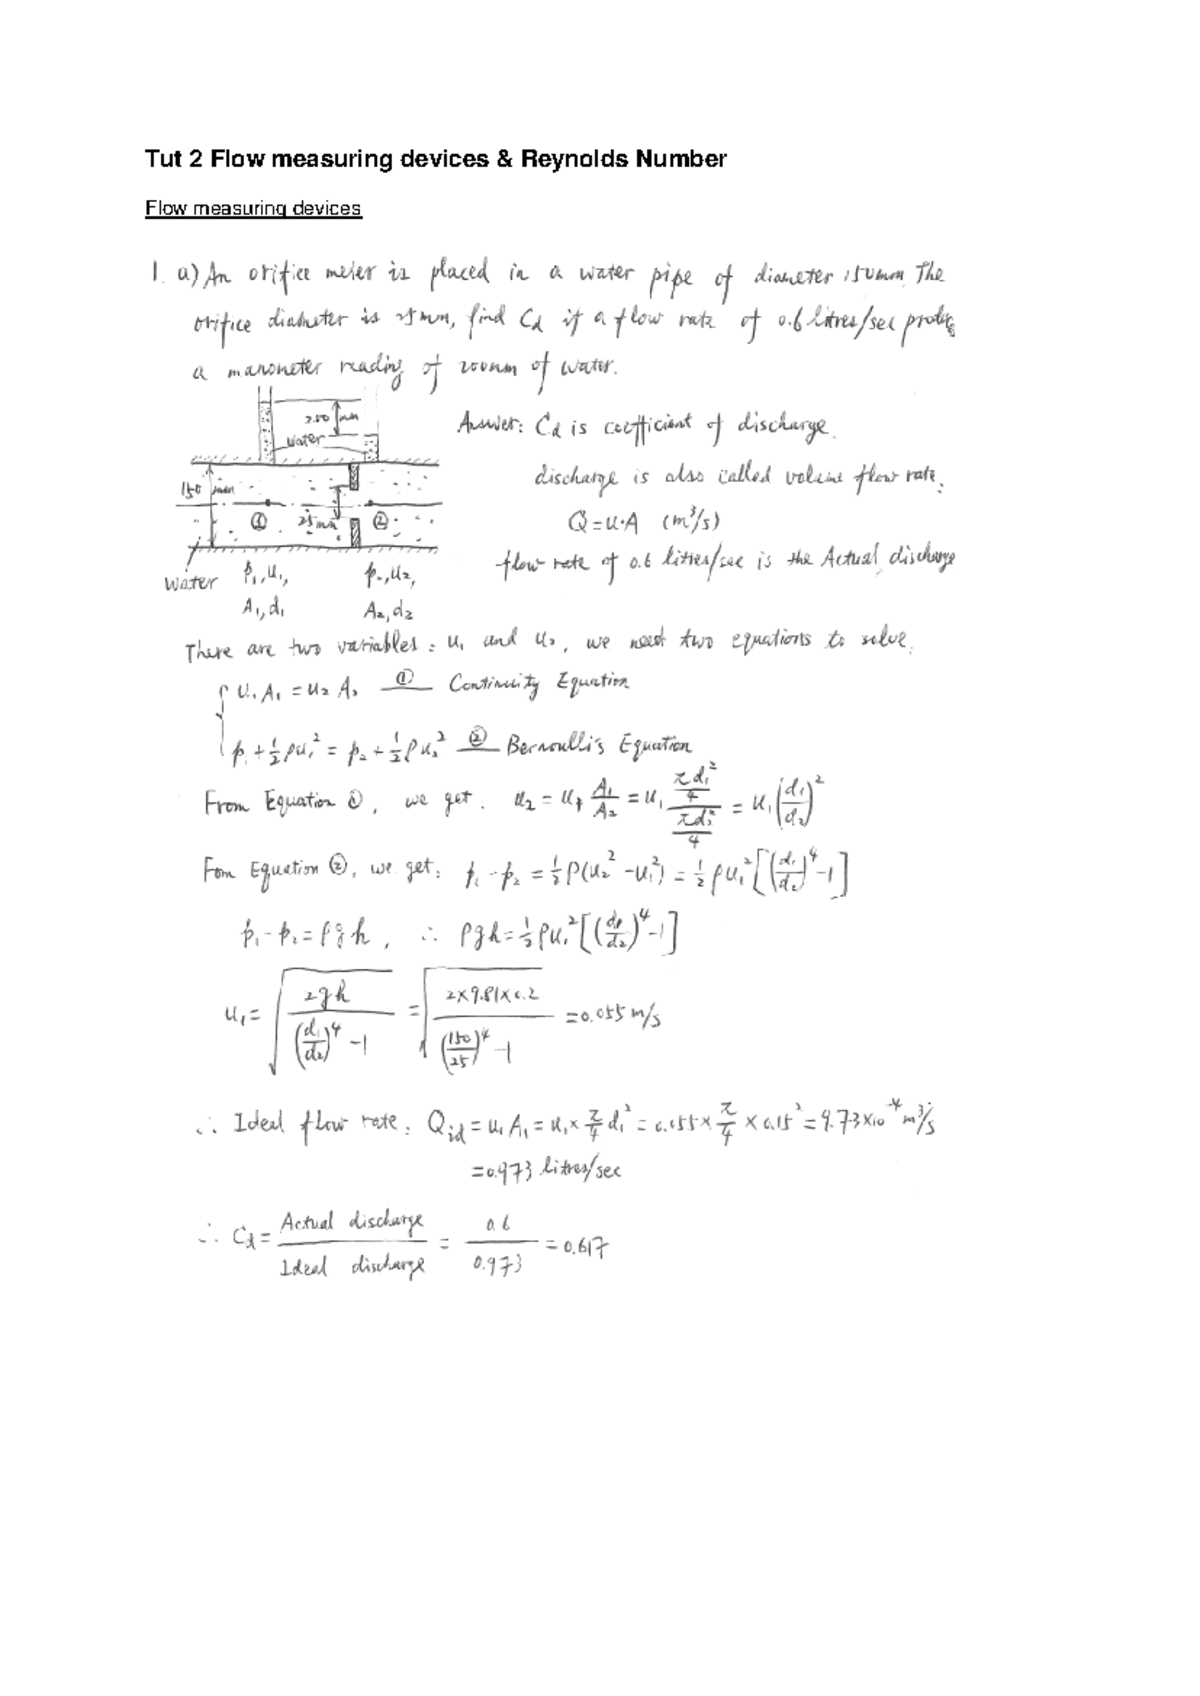 Tut 2 Flow measuring devices & Reynolds Number
Flow measuring devices
1. a) An orifice meter is placed in a water pipe of diameter 150mm. The
orifice diameter is 25mm, find Cd if a flow rate of 0.6 litres/sec
a manometer reading of 200mm of water.
200 mm
water
150 mm
① 25mm ②
Water p₁,u₁, p₂,u₂,
A₁,d₁ A₂,d₂
Answer: Cd is coefficient of discharge.
discharge is also called volume flow rate.
Q=u·A (m³/s)
flow rate of 0.6 litres/sec is the Actual discharge
There are two variables: u₁ and u₂, we need two equations to solve.
u₁A₁ = u₂A₂ ① Continuity Equation
p₁+½ρu₁² = p₂+½ρu₂² ② Bernoulli's Equation
From Equation ①, we get. u₂ = u₁ A₁/A₂ = u₁ (πd₁²/4)/(πd₂²/4) = u₁(d₁/d₂)²
Fom Equation ②, we get: p₁-p₂ = ½ρ(u₂²-u₁²) = ½ρu₁²[(d₁/d₂)⁴-1]
p₁-p₂=ρgh, ∴ ρgh=½ρu₁²[(d₁/d₂)⁴-1]
u₁= √(2gh/((d₁/d₂)⁴-1)) = √(2×9.81×0.2/((150/25)⁴-1)) =0.055 m/s
∴ Ideal flow rate: Qid = u₁A₁ = u₁× π/4 d₁² = 0.055× π/4 × 0.15² = 9.73×10⁻⁴ m³/s
=0.973 litres/sec
∴ Cd= Actual discharge/Ideal discharge = 0.6/0.973 = 0.617